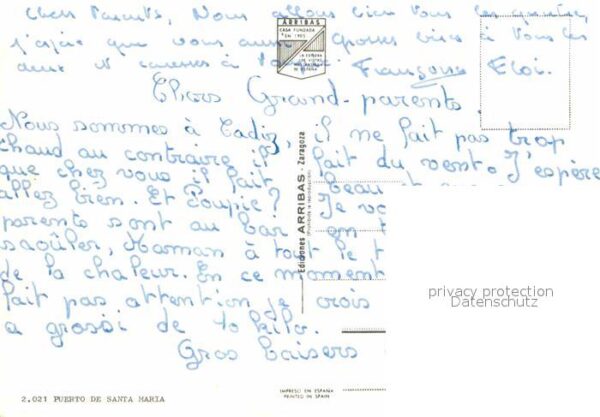 Chers Parents, Nous allons bien tous les quatre,
j'espère que vous aussi grosses bises à vous les
deux et caresses à
Françoise Eloi.
ARRIBAS
CASA FUNDADA
EN 1905
Chers Grand-parents.
Nous sommes à Cadiz, il ne fait pas trop
chaud au contraire il fait du vent. J'espère
que chez vous il fait beau
allez bien. Et Poupie? Je
parents sont au bar en
saoûler, Maman à tout le
de la chaleur. En ce moment
fait pas attention je crois
a grossi de 10 kilo.
Gros baisers
Ediciones ARRIBAS - Zaragoza
privacy protection
Datenschutz
2.021 PUERTO DE SANTA MARIA
IMPRESO EN ESPAÑA
PRINTED IN SPAIN